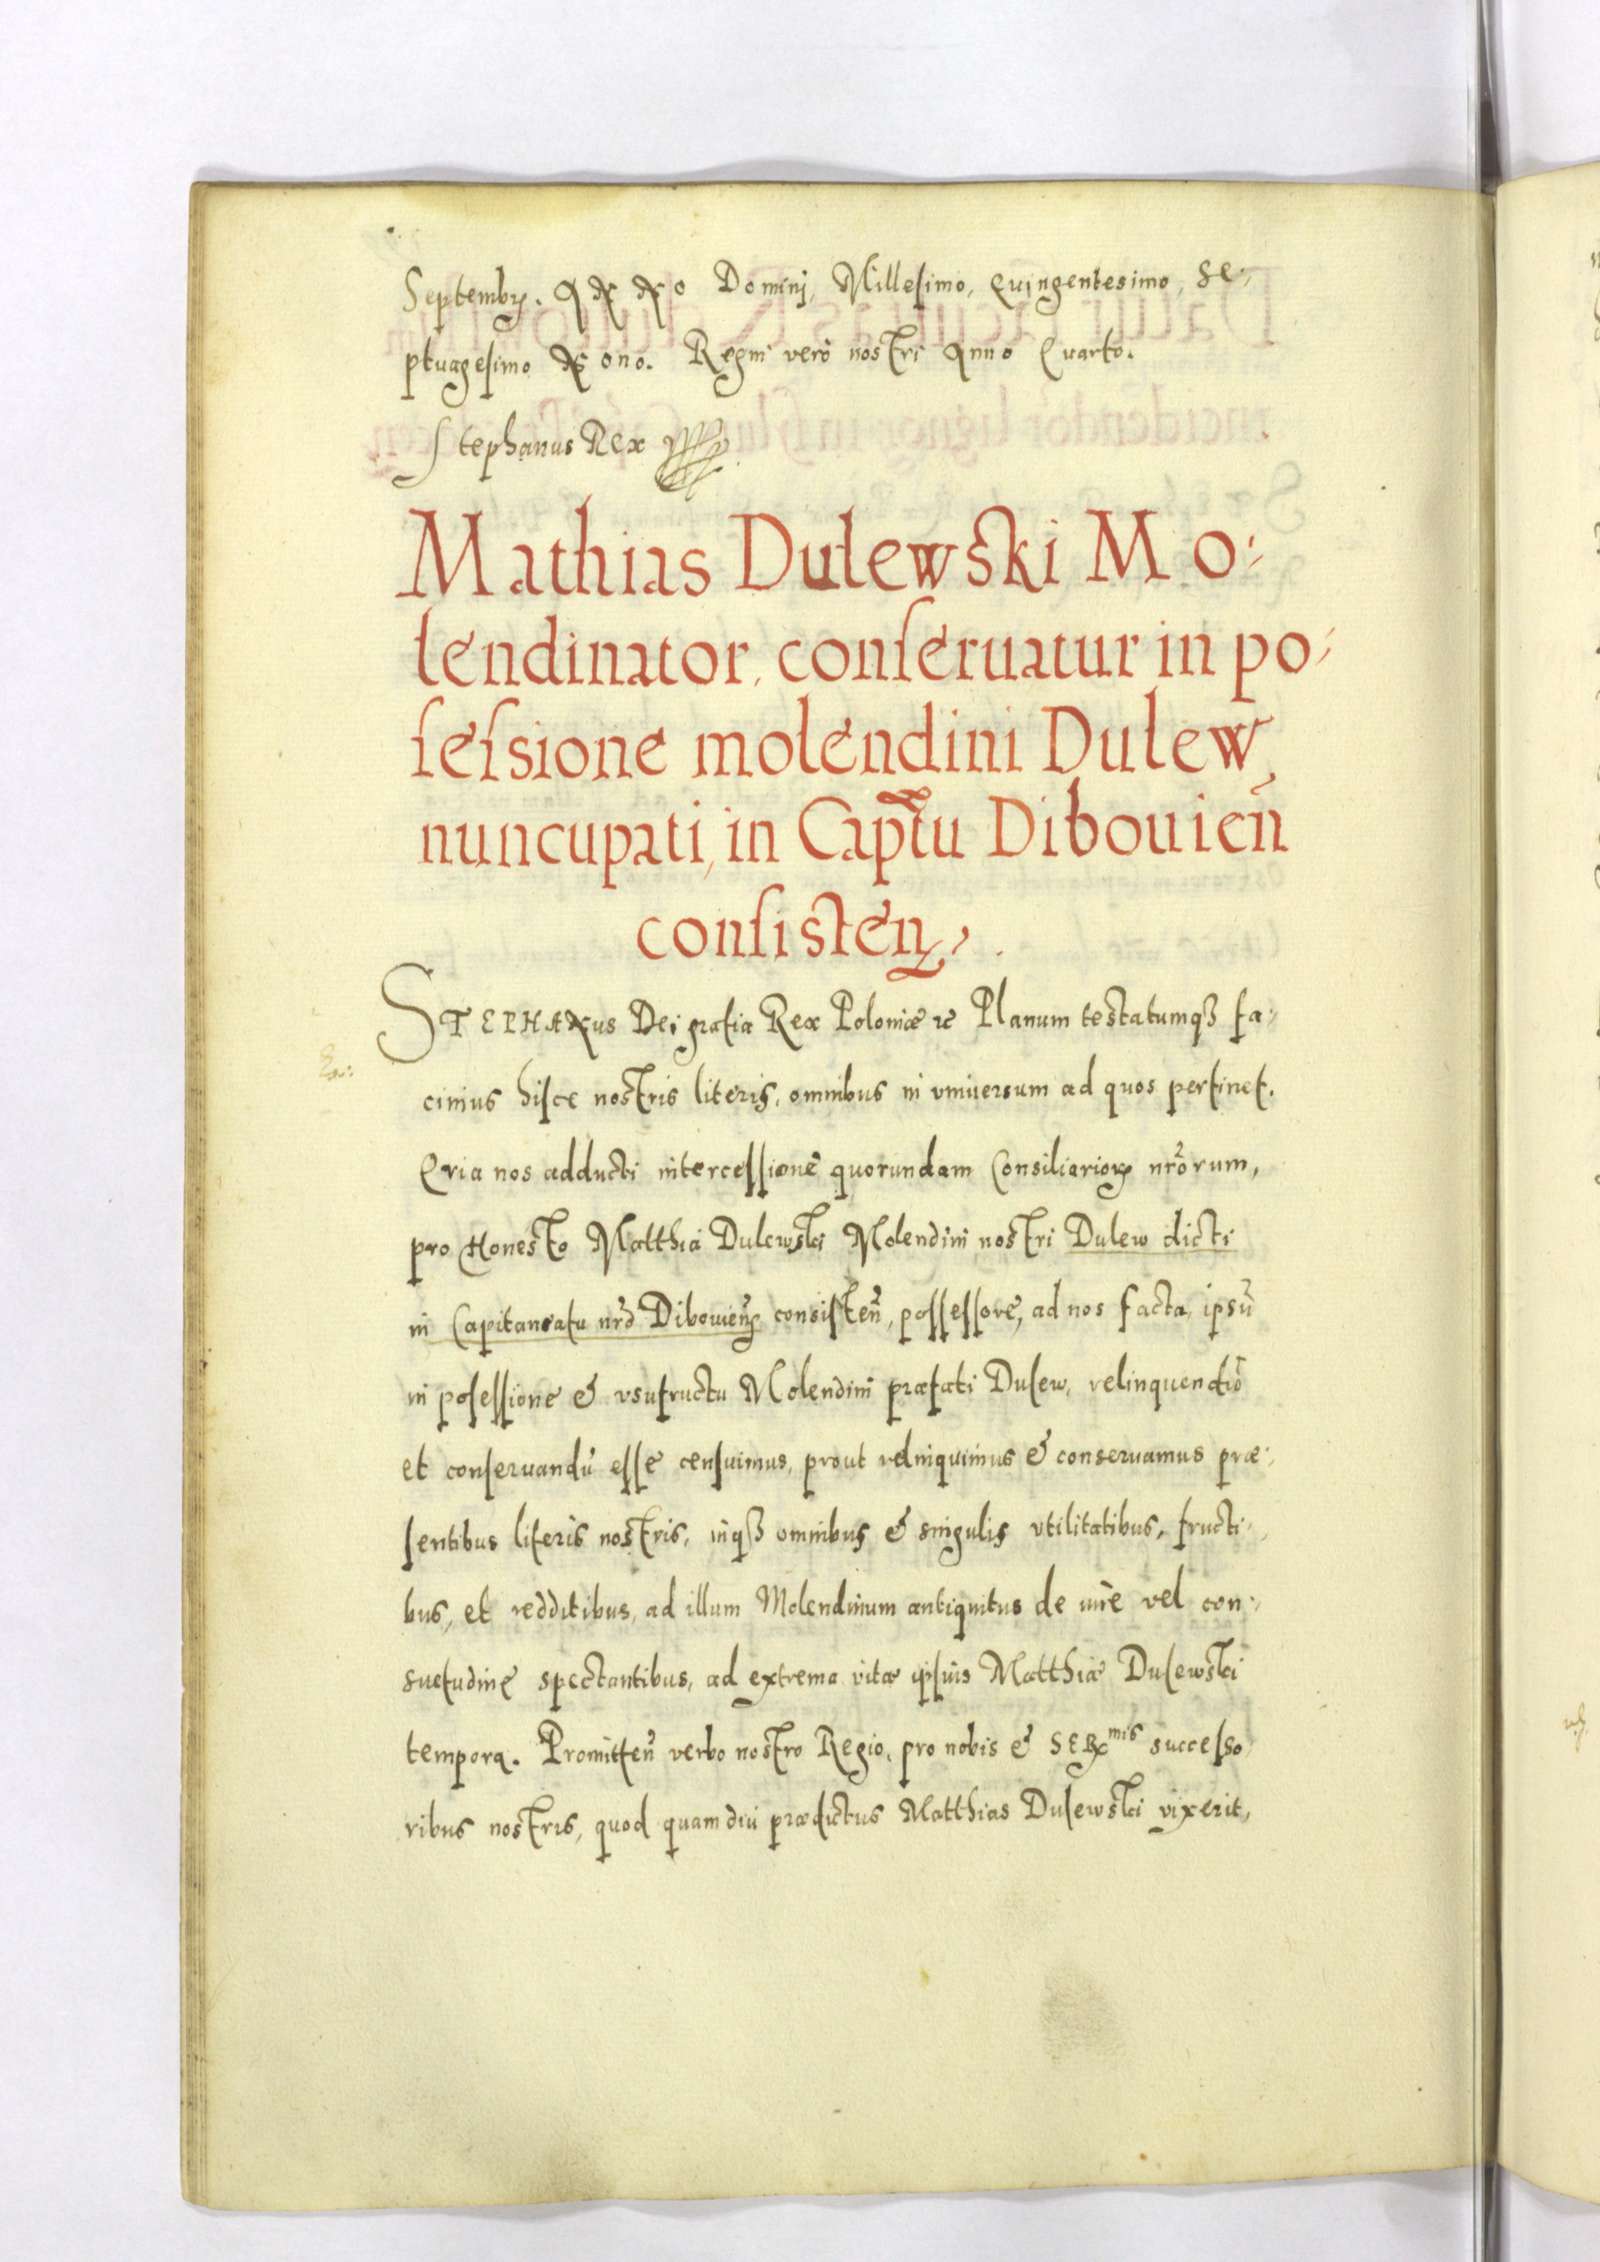 Septembr. ANNO Domini, Millesimo, Quingentesimo, Se-
ptuagesimo Nono. Regni verò nostri Anno Quarto.
Stephanus Rex
Mathias Dulewski Mo-
lendinator, conseruatur in po-
sessione molendini Dulew
nuncupati, in Capttu Dibouien̄
consisten.
STEPHANus Dei gratia Rex Poloniæ etc Planum testatumq3 fa-
cimus hisce nostris literis, omnibus in vniuersum ad quos pertinet.
Quia nos adducti intercessione quorundam Consiliarioꝝ nr̄orum,
pro Honesto Matthia Dulewski Molendini nostri Dulew dicti
in Capitaneatu nr̄o Dibouien̄ consisten̄, possessore, ad nos facta, ipsū
in posessione & vsufructu Molendini præfati Dulew, relinquendū
et conseruandū esse censuimus, prout relinquimus & conseruamus præ-
sentibus literis nostris, inq3 omnibus & singulis vtilitatibus, fructi-
bus, et redditibus, ad illum Molendinum antiquitus de iure vel con-
suetudine spectantibus, ad extrema vitæ ipsius Matthiæ Dulewski
tempora. Promitten̄ verbo nostro Regio, pro nobis & SER^mis successo
ribus nostris, quod quamdiu prædictus Matthias Dulewski vixerit,